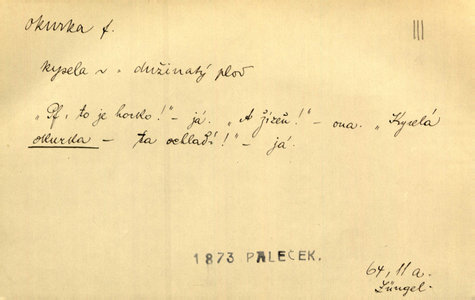 okurka f.
III
kyselá ~ „ dužinatý plod
„Pf, to je horko!“ – já. „A žízeň!“ – ona. „Kyselá
okurka – ta ochladí!“ – já.
1873 PALEČEK.
64, 11 a.
Züngel.